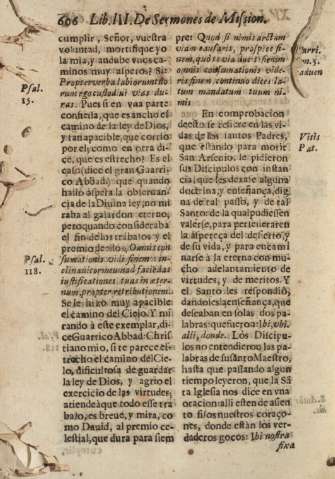 606 Lib. III. De Sermones de Mission.
cumplir, Señor, vuestra
voluntad, mortifique yo
la mia, y andube vnos ca-
minos muy asperos? Sit
Propter verba labiorum tuo
rum ego custodivi vias du-
Psal.
15.
ras. Pues si en vna parte
confiesa, que es ancho el
camino de la ley de Dios,
y tan apacible, que corrio
por el; como en otra di-
ce, que es estrecho? Es el
caso (dice el gran Guarri-
co Abbad) que quando
hallò aspera la observan-
cia de la Divina ley, no mi
raba al galardon eterno,
pero quando consideraba
el fin de los trabajos y el
premio de ellos, Omnis con
Psal.
118.
sumationis vidi finem: in-
clinavi cor meum ad faciēdas
iustificationes tuas in æter-
num, propter retributionem.
Se le hizo muy apacible
el camino del Cielo. Y mi
rando à este exemplar, di-
ce Guarrico Abbad: Chris
tiano mio, si te parece es-
trecho el camino del Cie-
lo, dificultosa de guardar
la ley de Dios, y agrio el
exercicio de las virtudes,
atiende à que todo esse tra
bajo, es breve, y mira, co-
mo David, al premio ce-
lestial, que dura para siem
pre: Quod si nimis arctam
viam causaris, prospice fi-
nem, quo te via ducit: si enim
omnis consumationis vide-
ris finem, continuo dices: la-
tum mandatum tuum ni-
mis
En comprobacion
de esto se refiere en las vi-
das de los santos Padres,
Vitis
que estando para morir
San Arsenio, le pidieron
sus Discipulos con instan-
cia, que les dexàse alguna
doctrina, y enseñança, dig
na de tal passo, y de tal
Santo: de la qual pudiessen
valerse, para perficionarse en
la aspereça del desierto, y
de su vida, y para encami
narse à la eterna con mu-
cho adelantamiento de
virtudes, y de meritos. Y
el Santo les respondiò,
dandoles la enseñança, que
deseaban en solas dos pa-
labras: que fueron: Ibi, vbi,
alii, donde. Los Discipu-
los no entendieron las
palabras de su santo Maestro,
hasta que passando algun
tiempo leyeron, que la Sā
ta Iglesia nos dice en vna
oracion: alli esten de asien
to fixos nuestros coraço-
nes, donde estàn los ver-
daderos goços: Ibi nostra
fixa